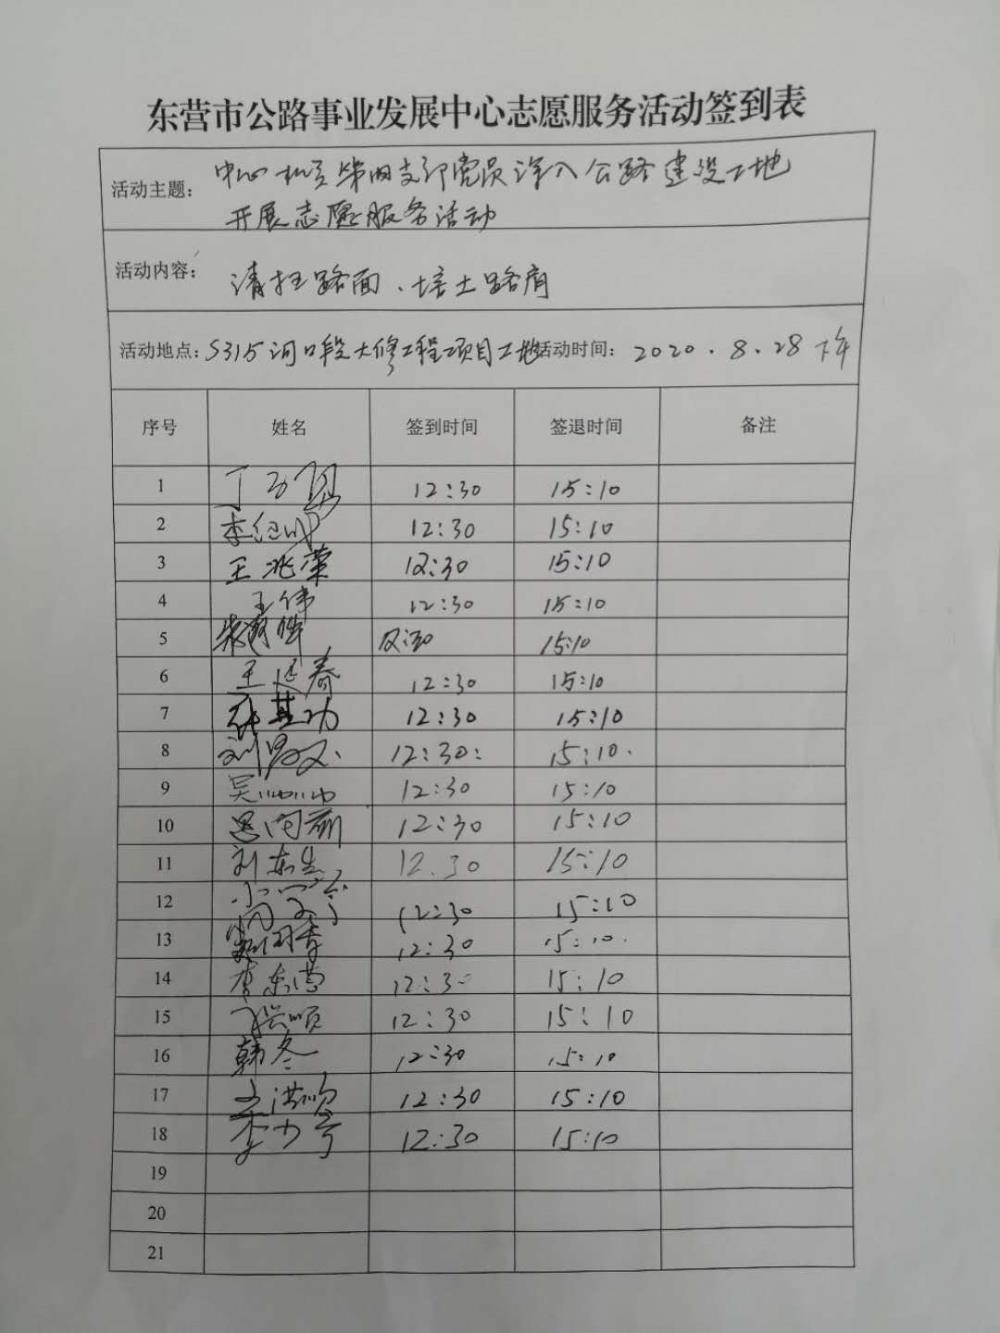 东营市公路事业发展中心志愿服务活动签到表
活动主题: 中心机关第四支部党员深入公路建设工地
开展志愿服务活动
活动内容: 清扫路面、培土路肩
活动地点: S315河口段大修工程项目工地 活动时间: 2020.8.28 下午
序号 姓名 签到时间 签退时间 备注
1 12:30 15:10
2 12:30 15:10
3 王兆荣 12:30 15:10
4 王伟 12:30 15:10
5 15:10
6 王延春 12:30 15:10
7 12:30 15:10
8 12:30: 15:10.
9 12:30 15:10
10 12:30 15:10
11 刘东生 12.30 15:10
12 12:30 15:10
13 12:30 15:10.
14 李东营 12:30 15:10
15 12:30 15:10
16 韩冬 12:30 15:10
17 12:30 15:10
18 12:30 15:10
19
20
21